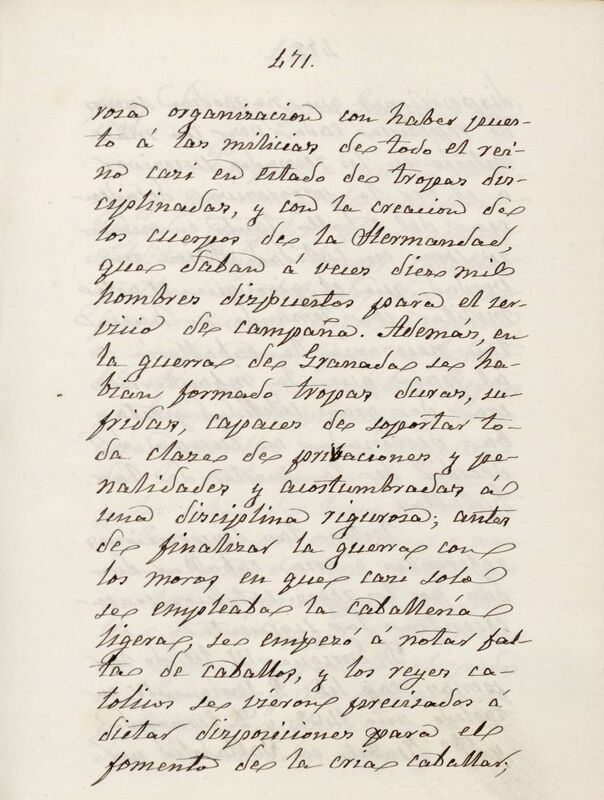 471.
rosa organizacion con haber pues-
to á las milicias de todo el rei-
no casi en estado de tropas dis-
ciplinadas, y con la creacion de
los cuerpos de la Hermandad,
que daban á veces diez mil
hombres dispuestos para el ser-
vicio de campaña. Además, en
la guerra de Granada se ha-
bian formado tropas duras, su-
fridas, capaces de soportar to-
da clase de privaciones y pe-
nalidades y acostumbradas á
una disciplina rigurosa; antes
de finalizar la guerra con
los moros en que casi solo
se empleaba la caballería
ligera, se empezó á notar fal-
ta de caballos, y los reyes ca-
tolicos se vieron precisados á
dictar disposiciones para el
fomento de la cria caballar;